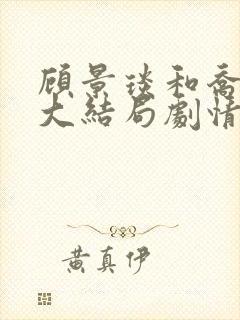 顾景琰和乔
大结局劇情
黄真伊